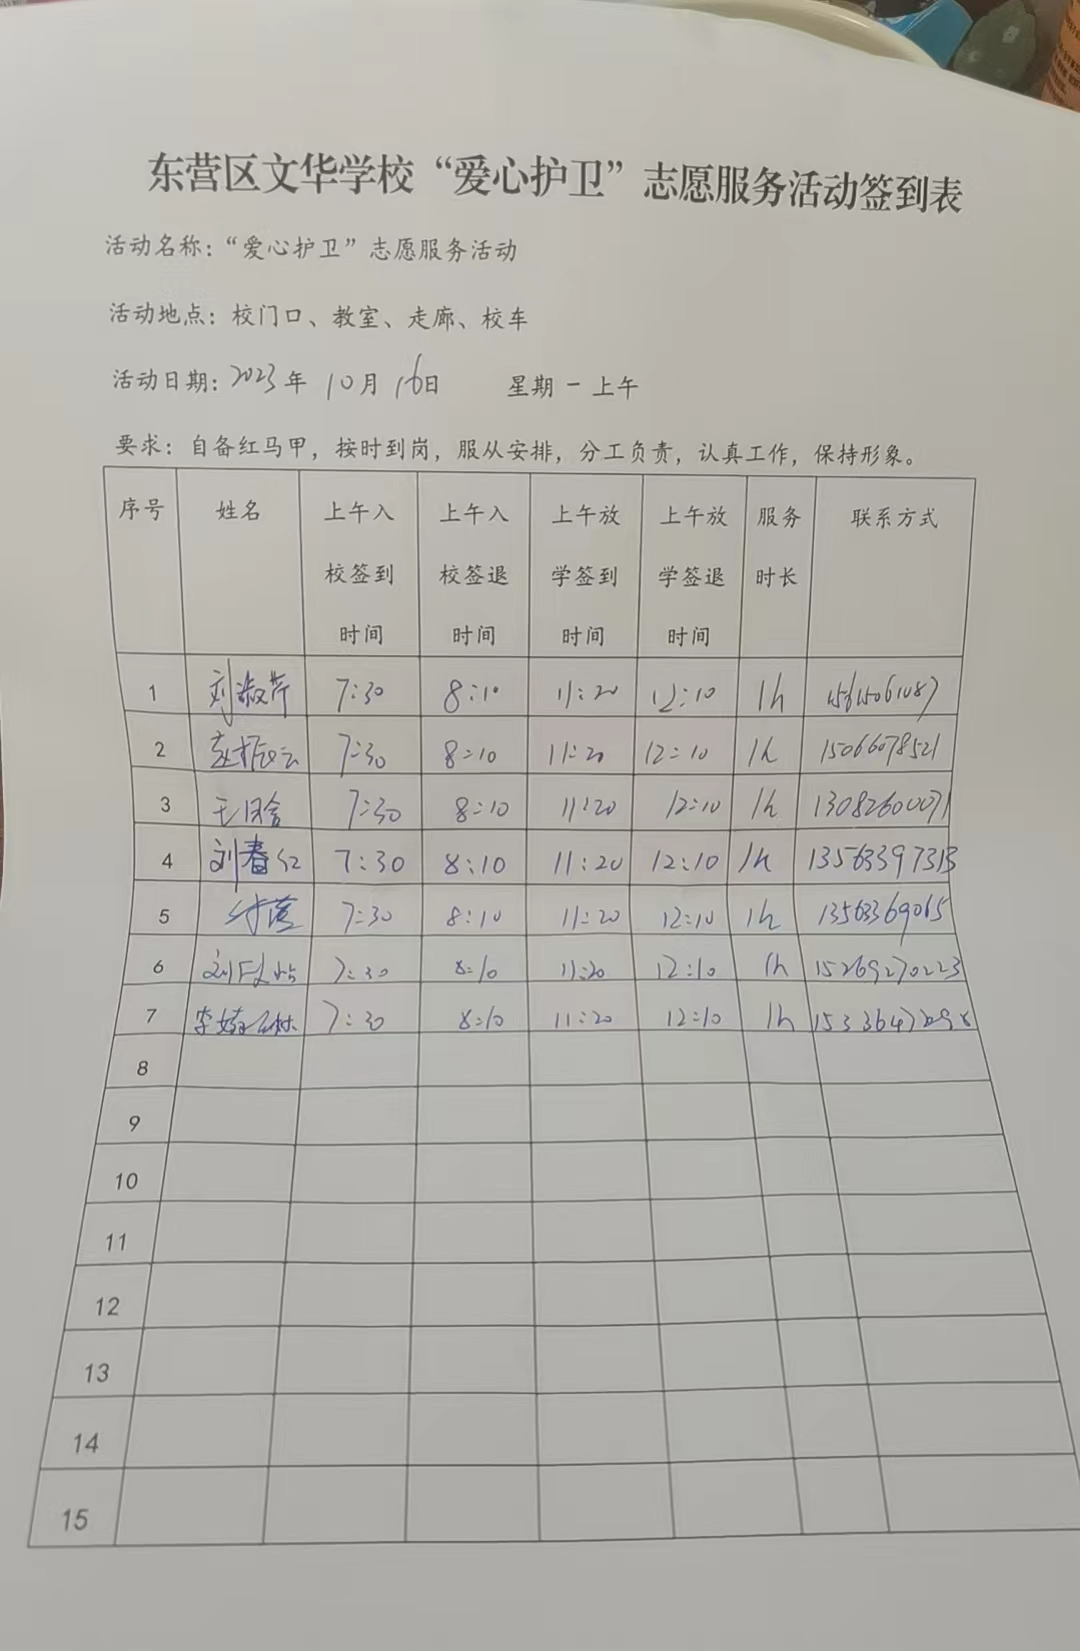 东营区文华学校“爱心护卫”志愿服务活动签到表
活动名称：“爱心护卫”志愿服务活动
活动地点：校门口、教室、走廊、校车
活动日期：2023年 10月 16日 星期一上午
要求：自备红马甲，按时到岗，服从安排，分工负责，认真工作，保持形象。
序号 姓名 上午入校签到时间 上午入校签退时间 上午放学签到时间 上午放学签退时间 服务时长 联系方式
1 刘淑芹 7:30 8:10 11:20 12:10 1h
2 7:30 8:10 11:20 12:10 1h 15066078521
3 7:30 8:10 11:20 12:10 1h 13082600071
4 刘春红 7:30 8:10 11:20 12:10 1h
5 7:30 8:10 11:20 12:10 1h 13563369065
6 7:30 8:10 11:20 12:10 1h 15269270223
7 7:30 8:10 11:20 12:10 1h
8
9
10
11
12
13
14
15